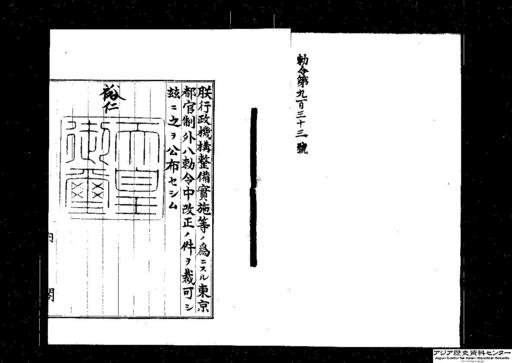 勅令第九百三十三號
朕行政機構整備實施等ノ爲ニスル東京
都官制外八勅令中改正ノ件ヲ裁可シ
玆ニ之ヲ公布セシム
裕仁
天皇
御璽
内閣
アジア歴史資料センター
Japan Center for Asian Historical Records